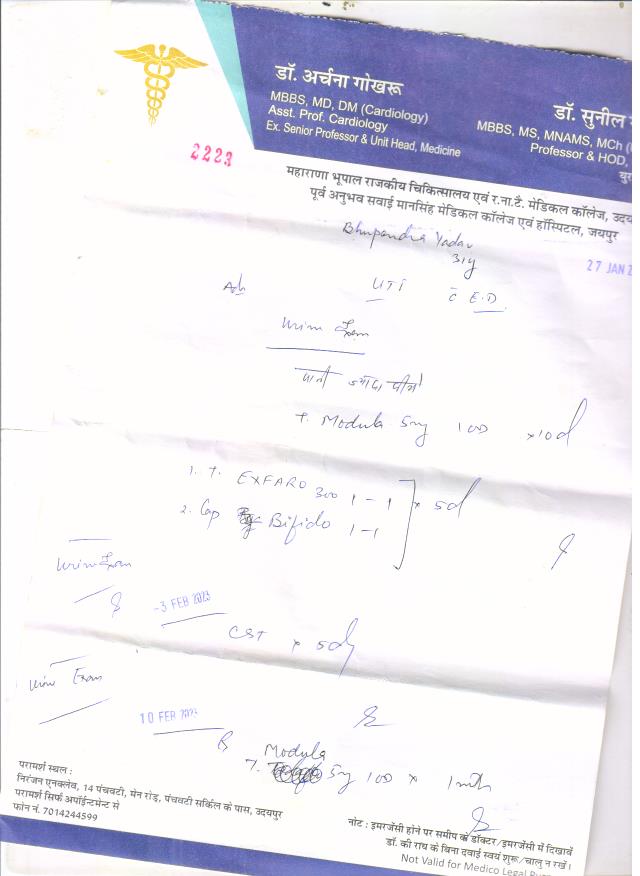 डॉ. अर्चना गोखरू
MBBS, MD, DM (Cardiology)
Asst. Prof. Cardiology
Ex. Senior Professor & Unit Head, Medicine
डॉ. सुनील
MBBS, MS, MNAMS, MCh
Professor & HOD,
2223
महाराणा भूपाल राजकीय चिकित्सालय एवं र.ना.टै. मेडिकल कॉलेज, उदय
पूर्व अनुभव सवाई मानसिंह मेडिकल कॉलेज एवं हॉस्पिटल, जयपुर
Bhupendra Yadav
31y
27 JAN 2
UTI c̄ E.D.
Urine Exam
पानी ज्यादा पीयें
T. Modula 5mg 1OD x10d
1. T. EXFARO 300 1-1
2. Cap Bifido 1-1
x 5d
Urine Exam
-3 FEB 2023
CST x 5d
Urine Exam
10 FEB 2023
Modula
T. 5mg 1OD x 1mth
परामर्श स्थल :
निरंजन एनक्लेव, 14 पंचवटी, मेन रोड़, पंचवटी सर्किल के पास, उदयपुर
परामर्श सिर्फ अपॉईन्टमेन्ट से
फोन नं. 7014244599
नोट : इमरजेंसी होने पर समीप के डॉक्टर/इमरजेंसी में दिखावें
डॉ. की राय के बिना दवाई स्वयं शुरू/चालु न रखें।
Not Valid for Medico Legal